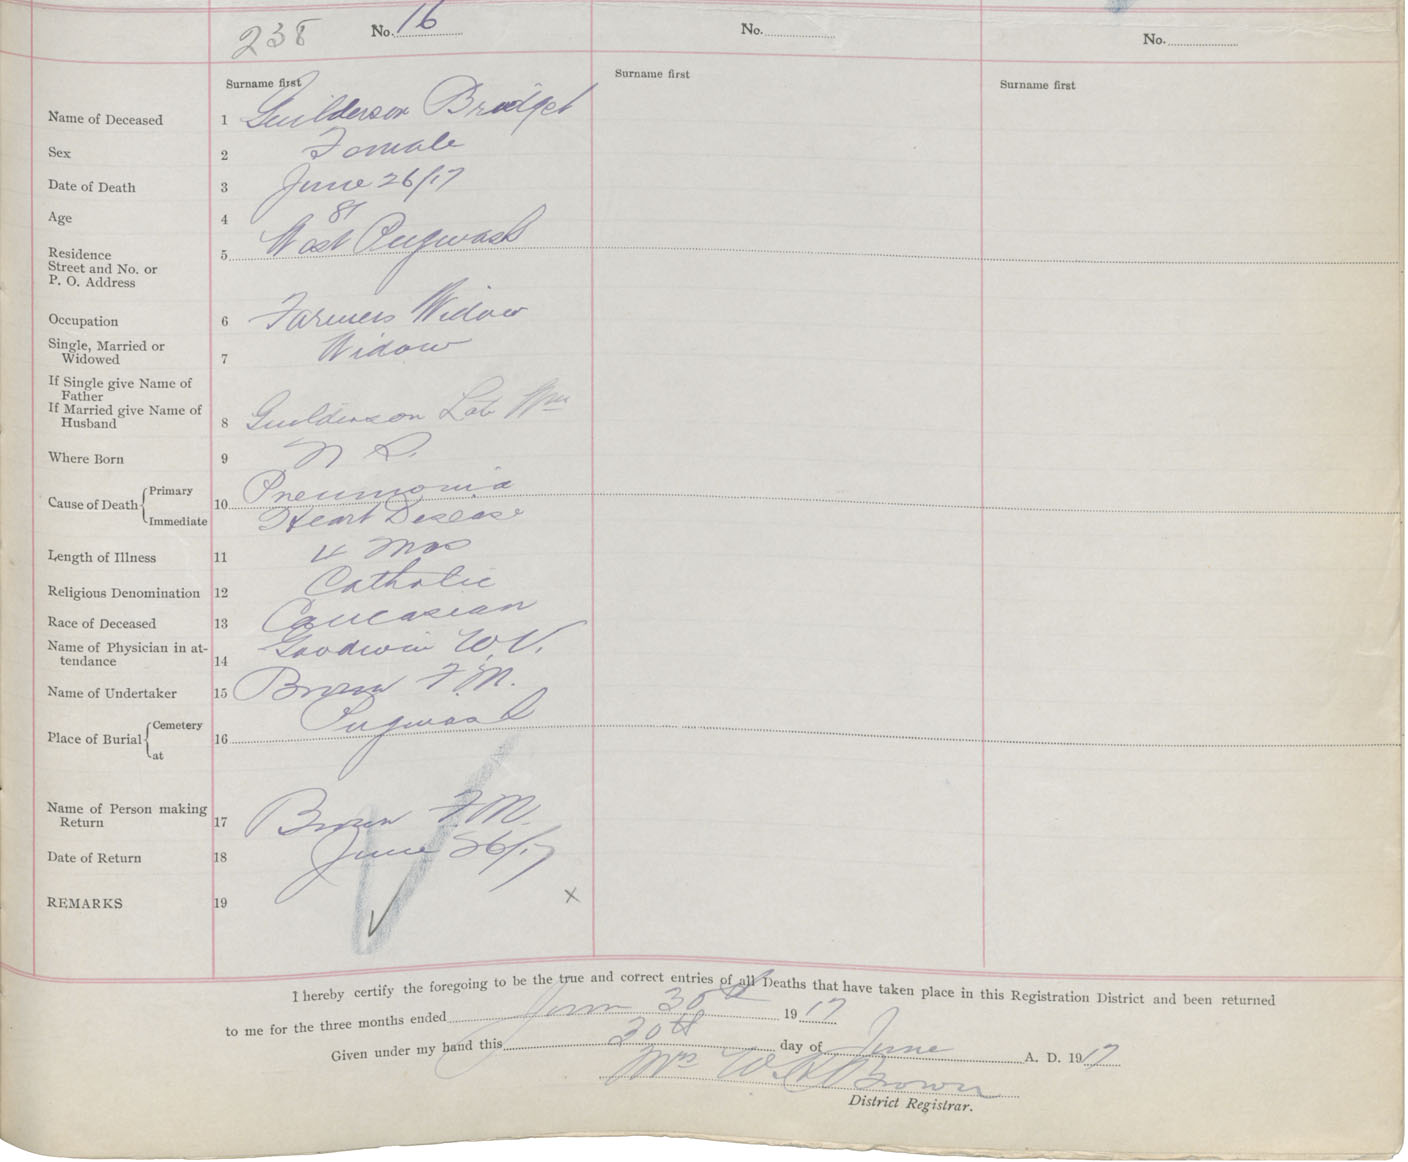 238
No. 16
No.
No.
Surname first
Surname first
Surname first
Name of Deceased 1 Guilderson Bridget
Sex 2 Female
Date of Death 3 June 26/17
Age 4 81
Residence
Street and No. or
P. O. Address
5 West Pugwash
Occupation 6 Farmers Widow
Single, Married or
Widowed 7 Widow
If Single give Name of
Father
If Married give Name of
Husband 8 Guilderson Late Wm
Where Born 9 N S.
Cause of Death 10
Primary Pneumonia
Immediate Heart Disease
Length of Illness 11 4 Mos
Religious Denomination 12 Catholic
Race of Deceased 13 Caucasian
Name of Physician in at-
tendance 14 Goodwin W.V.
Name of Undertaker 15 Brown F.M.
Place of Burial 16
Cemetery Pugwash
at
Name of Person making
Return 17 Brown F.M.
Date of Return 18 June 26/17
REMARKS 19 x
I hereby certify the foregoing to be the true and correct entries of all Deaths that have taken place in this Registration District and been returned
to me for the three months ended June 30th 1917
Given under my hand this 30th day of June A. D. 1917
Mrs W. H Brown
District Registrar.